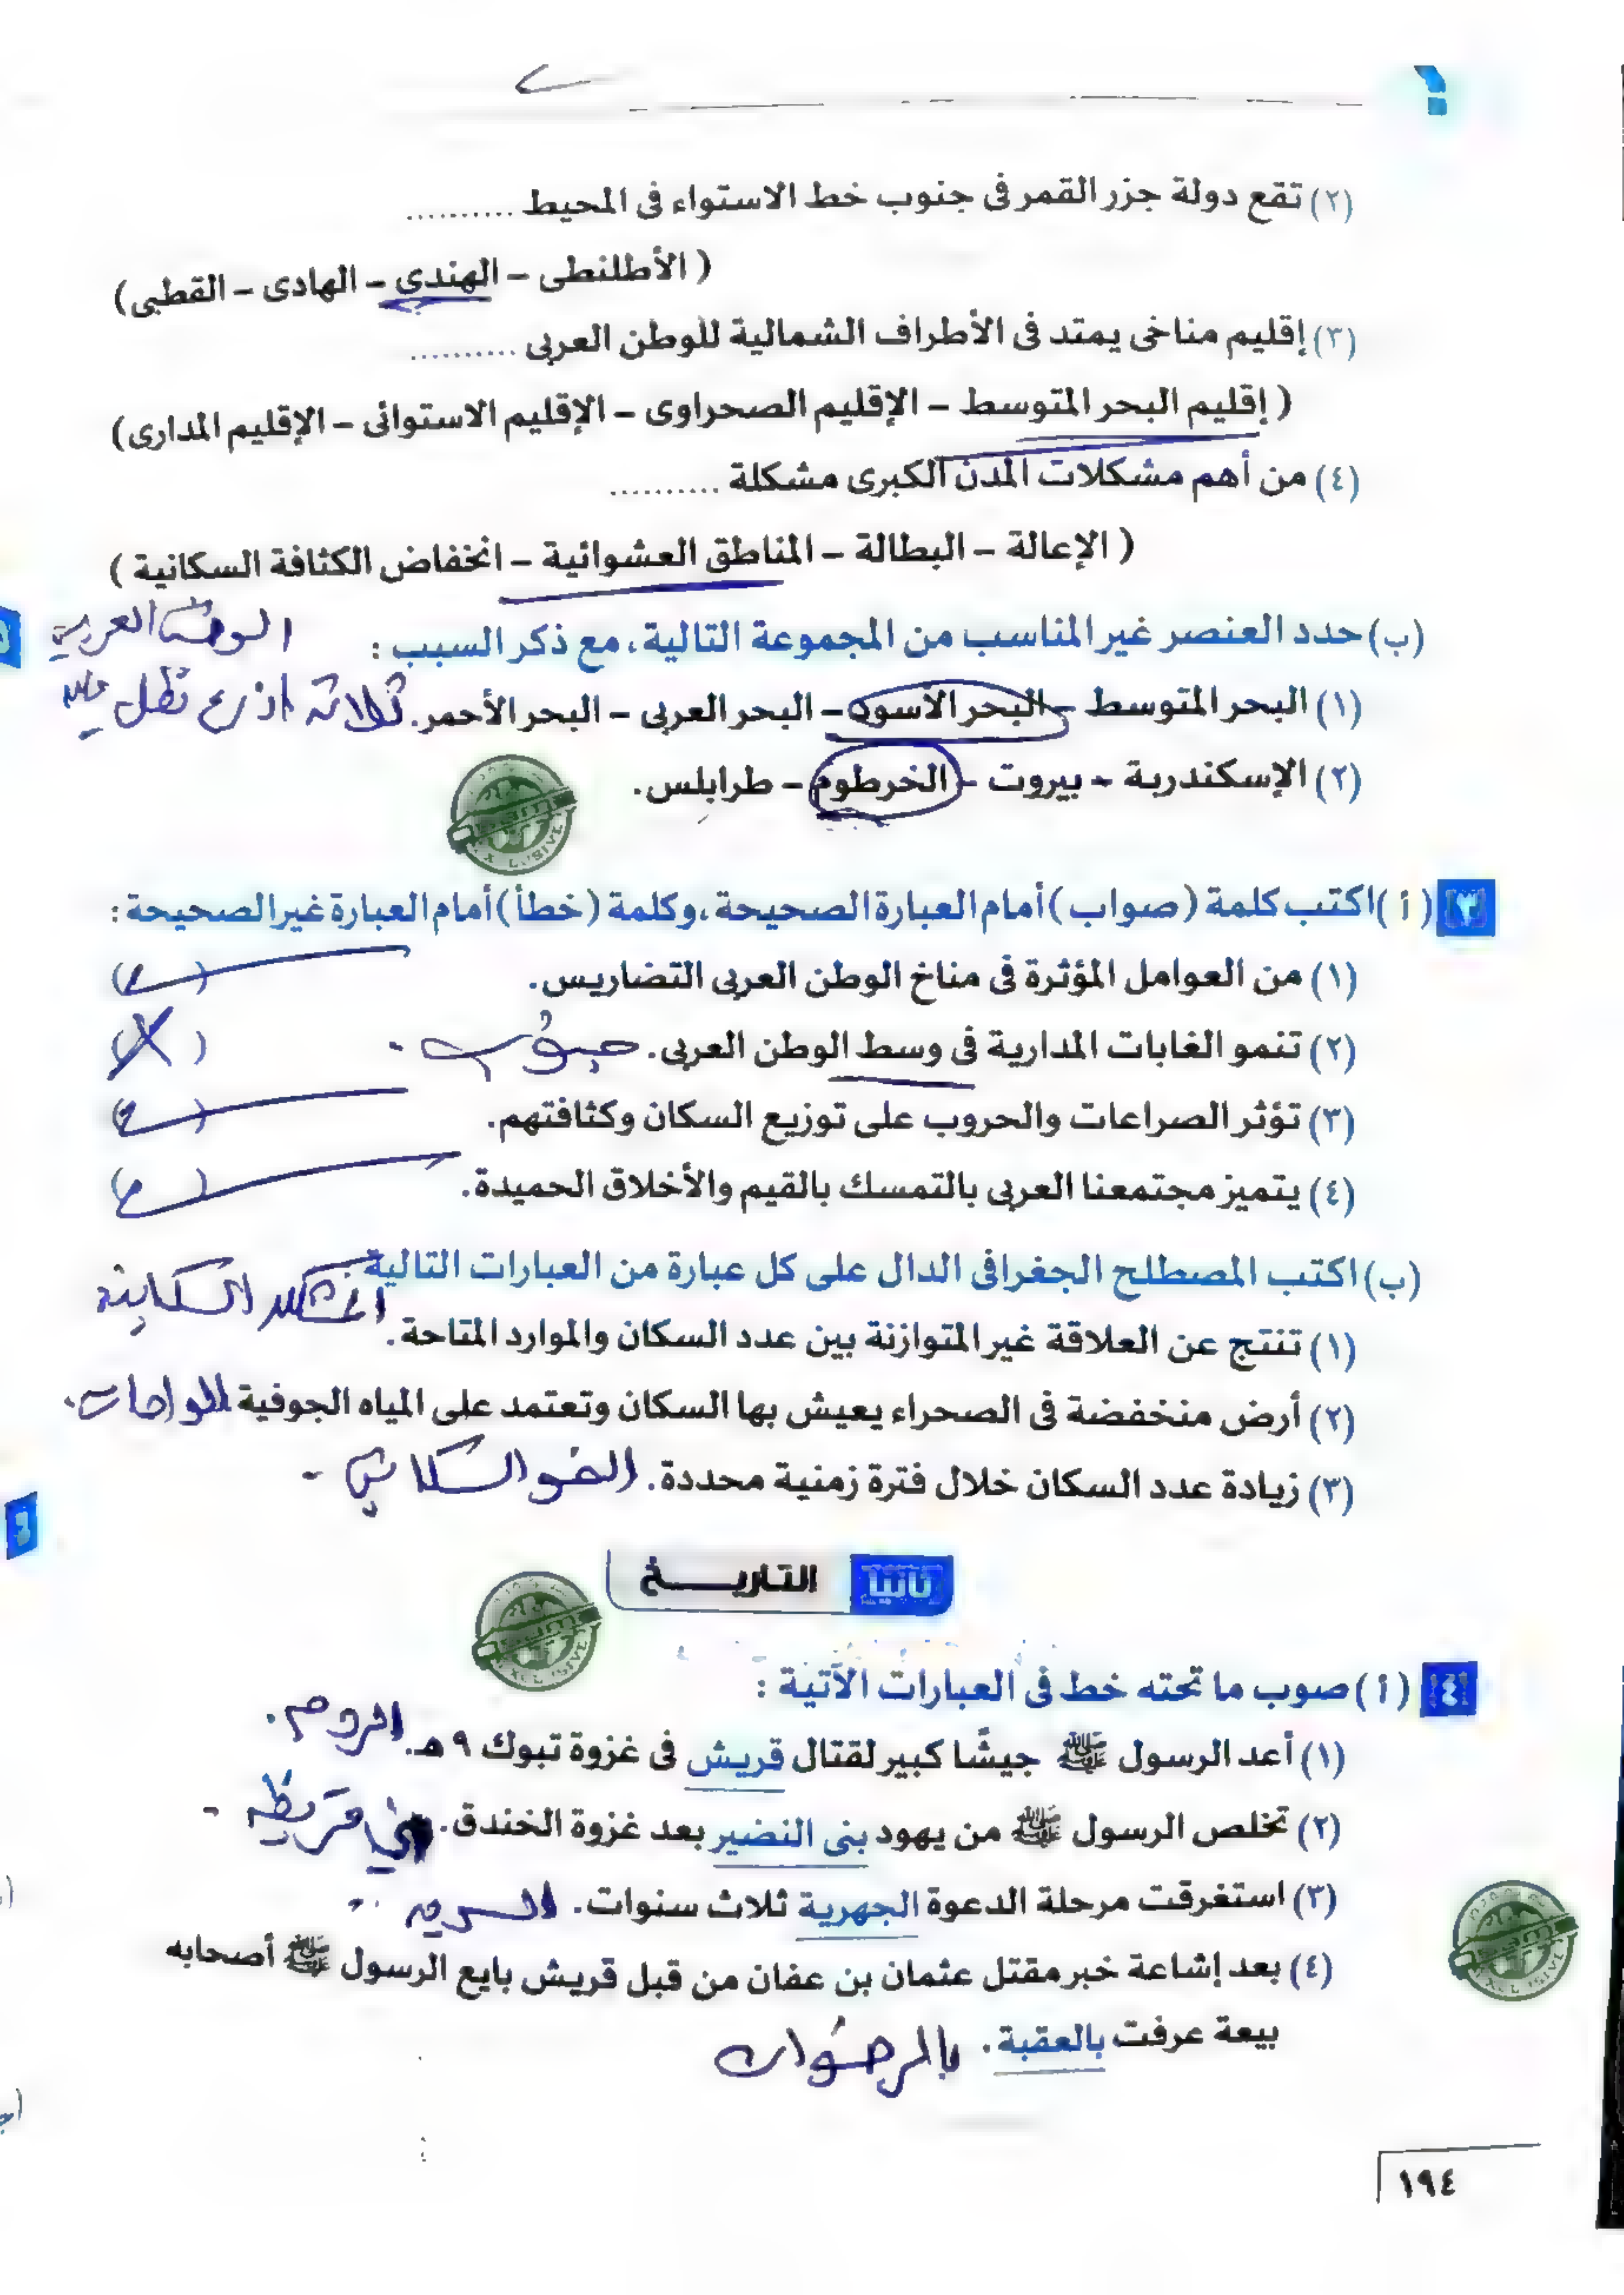 ؟
(٢) تقع دولة جزر القمر فى جنوب خط الاستواء فى المحيط ..........
( الأطلنطى – الهندى – الهادى – القطبى )
(٣) إقليم مناخى يمتد فى الأطراف الشمالية للوطن العربى ..........
( إقليم البحر المتوسط – الإقليم الصحراوى – الإقليم الاستوائى – الإقليم المدارى )
(٤) من أهم مشكلات المدن الكبرى مشكلة ..........
( الإعالة – البطالة – المناطق العشوائية – انخفاض الكثافة السكانية )
(ب) حدد العنصر غير المناسب من المجموعة التالية، مع ذكر السبب : الوطن العربي
(١) البحر المتوسط – البحر الأسود – البحر العربى – البحر الأحمر. ثلاثة اذرع تطل عليه
(٢) الإسكندرية – بيروت – الخرطوم – طرابلس.
٣ ( أ ) اكتب كلمة ( صواب ) أمام العبارة الصحيحة، وكلمة ( خطأ ) أمام العبارة غير الصحيحة :
(١) من العوامل المؤثرة فى مناخ الوطن العربى التضاريس. ( )
(٢) تنمو الغابات المدارية فى وسط الوطن العربى. جنوب. (X)
(٣) تؤثر الصراعات والحروب على توزيع السكان وكثافتهم. ( )
(٤) يتميز مجتمعنا العربى بالتمسك بالقيم والأخلاق الحميدة. ( )
(ب) اكتب المصطلح الجغرافى الدال على كل عبارة من العبارات التالية :
(١) تنتج عن العلاقة غير المتوازنة بين عدد السكان والموارد المتاحة. المشكلة السكانية
(٢) أرض منخفضة فى الصحراء يعيش بها السكان وتعتمد على المياه الجوفية الواحات.
(٣) زيادة عدد السكان خلال فترة زمنية محددة. النمو السكاني -
ثانيا التاريـــخ
٤ ( أ ) صوب ما تحته خط فى العبارات الآتية :
(١) أعد الرسول ﷺ جيشًا كبير لقتال قريش فى غزوة تبوك ٩ هـ. الروم.
(٢) تخلص الرسول ﷺ من يهود بنى النضير بعد غزوة الخندق. بني قريظه -
(٣) استغرقت مرحلة الدعوة الجهرية ثلاث سنوات. السريه
(٤) بعد إشاعة خبر مقتل عثمان بن عفان من قبل قريش بايع الرسول ﷺ أصحابه
بيعة عرفت بالعقبة. بالرضوان
١٩٤